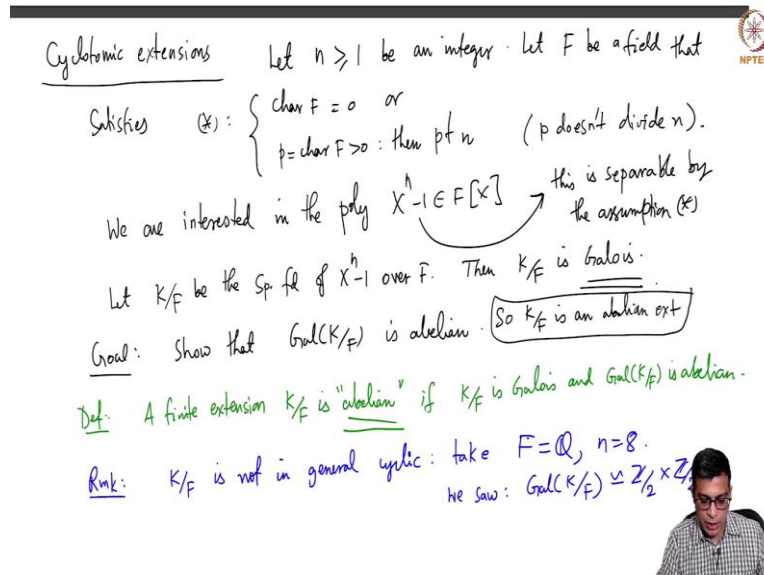 Cyclotomic extensions Let n ⩾ 1 be an integer. Let F be a field that
NPTEL
Satisfies (*): { char F = 0 or
p = char F > 0 : then p∤n (p doesn't divide n).
We are interested in the poly X^n - 1 ∈ F[X] → this is separable by the assumption (*)
Let K/F be the sp. fd of X^n - 1 over F. Then K/F is Galois.
Goal: Show that Gal(K/F) is abelian. So K/F is an abelian ext
Def: A finite extension K/F is "abelian" if K/F is Galois and Gal(K/F) is abelian.
Rmk: K/F is not in general cyclic: take F = ℚ, n = 8.
We saw: Gal(K/F) ≃ ℤ/2 × ℤ/